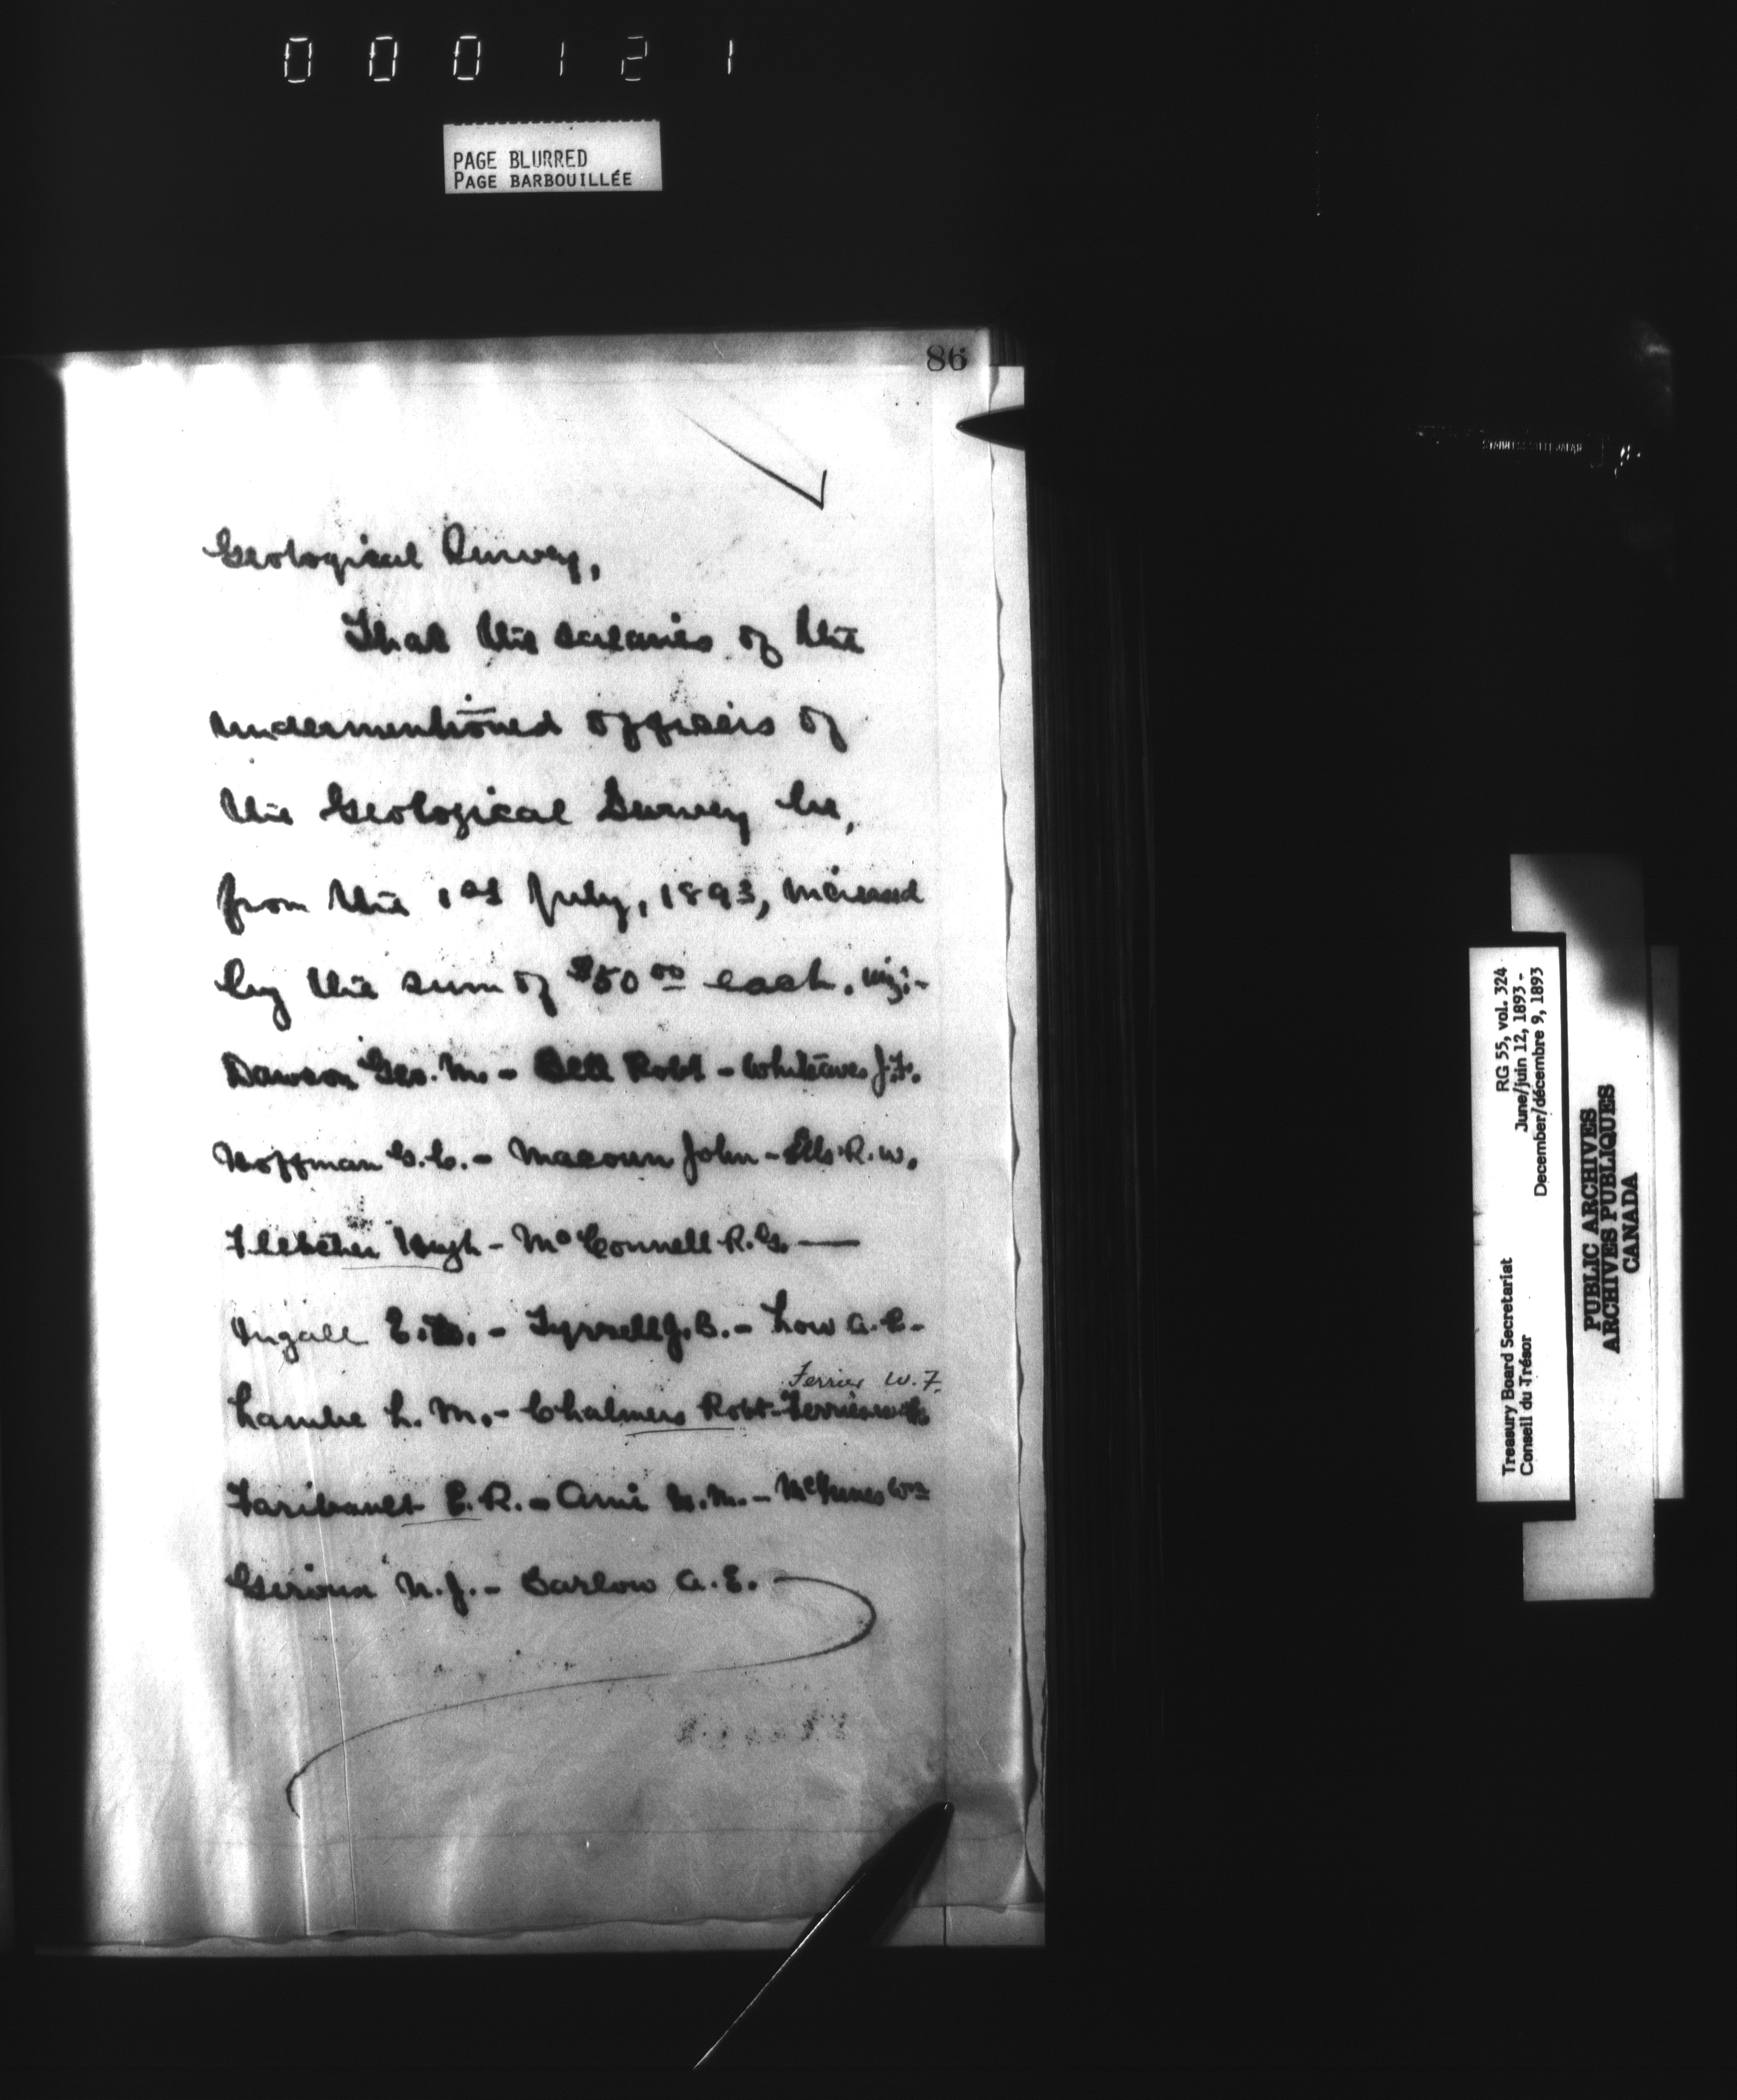 000121
PAGE BLURRED
PAGE BARBOUILLÉE
86
Geological Survey,
That the salaries of the
undermentioned officers of
the Geological Survey be,
from the 1st July, 1893, increased
by the sum of $50 00 each. viz:-
Dawson Geo. M. - Bell Robt - Whiteaves J.F.
Hoffman G.C. - Macoun John - Ells R.W.
Fletcher Hugh - McConnell R.G. —
Ingall E.D. - Tyrrell J.B. - Low A.P. -
Ferrier W.F.
Lambe L.M. - Chalmers Robt - Ferrier W.F.
Faribault E.R. - Ami H.M. - McInnes Wm
Giroux N.J. - Barlow A.E.
RG 55, vol. 324
June/juin 12, 1893 -
December/décembre 9, 1893
Treasury Board Secretariat
Conseil du Trésor
PUBLIC ARCHIVES
ARCHIVES PUBLIQUES
CANADA